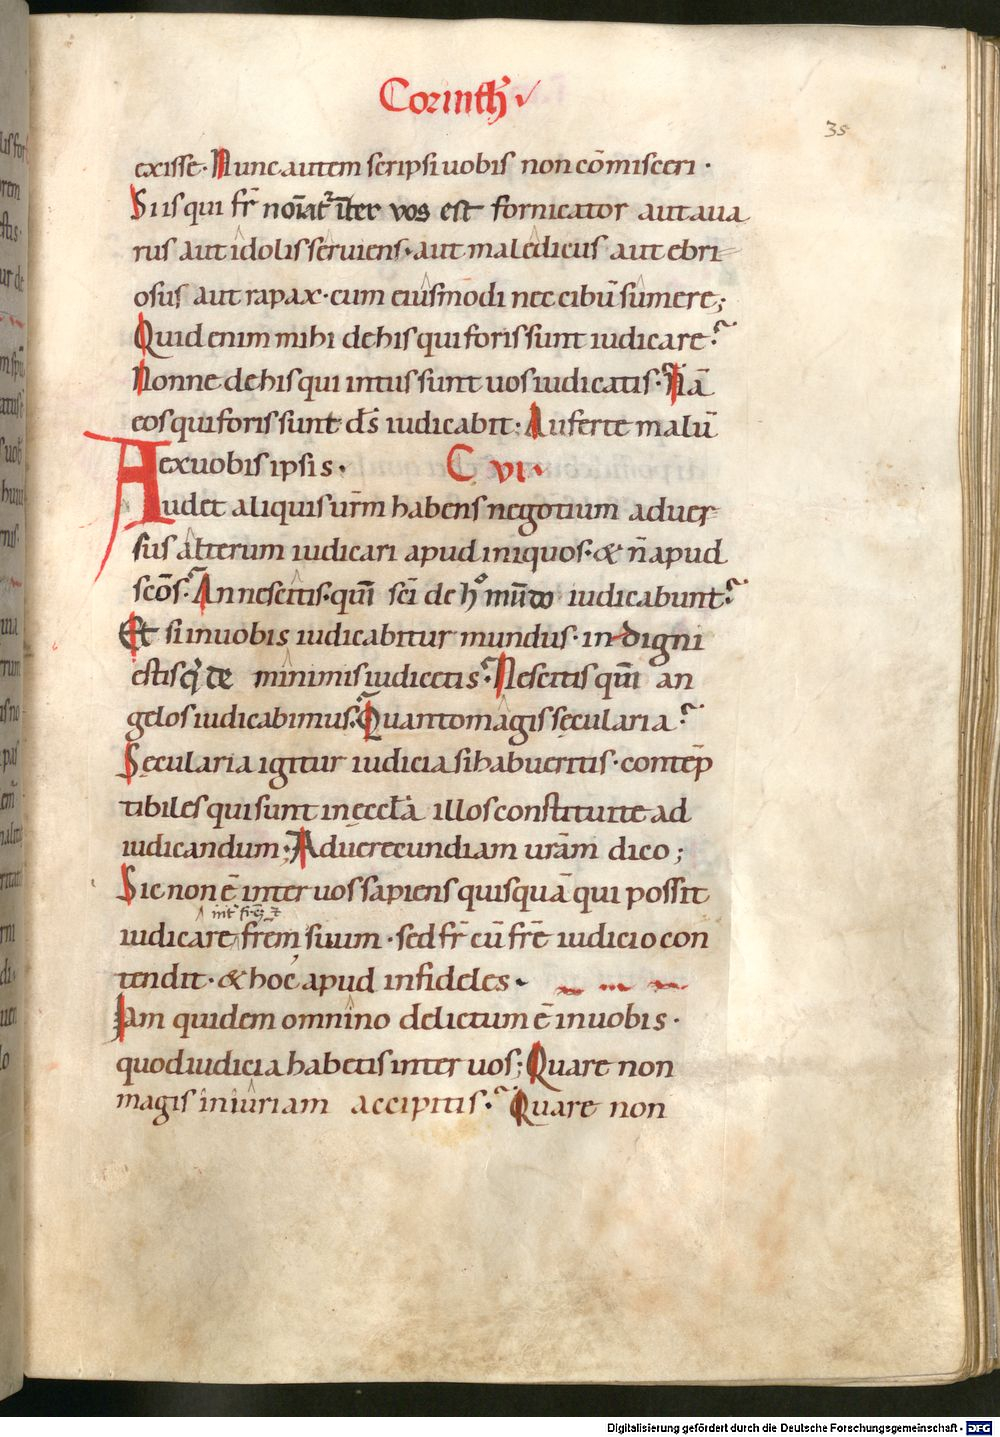 Corinth̄
35
exisse· Nunc autem scripsi uobis non cōmisceri·
Si is qui fr̄ noīat᷑ īter vos est fornicator aut aua
rus aut idolis seruiens· aut maledicus aut ebri
osus aut rapax· cum eiusmodi nec cibū sumere;
Quid enim mihi de his qui foris sunt iudicare?
Nonne de his qui intus sunt uos iudicatis? Nā
eos qui foris sunt ds̄ iudicabit: Auferte malū
ex uobis ipsis· C VI·
Audet aliquis ur̄m habens negotium aduer
sus alterum iudicari apud iniquos· & n̄ apud
scōs? An nescitis· qm̄ sc̄i de hº mūdo iudicabunt?
Et si in uobis iudicabitur mundus· indigni
estis q̇ de minimis iudicetis? Nescitis qm̄ an
gelos iudicabimus? Quanto magis sęcularia?
Sęcularia igitur iudicia si habueritis· contēp
tibiles qui sunt in ęccła illos constituite ad
iudicandum; Ad uerecundiam urām dico;
Sic non ē inter uos sapiens quisquā qui possit
int᷑ frēz ⁊
iudicare frēm suum· sed fr̄ cū frē iudicio con
tendit· & hoc apud infideles·
Iam quidem omnino delictum ē in uobis·
quod iudicia habetis inter uos; Quare non
magis iniuriam accipitis? Quare non
Digitalisierung gefördert durch die Deutsche Forschungsgemeinschaft - DFG